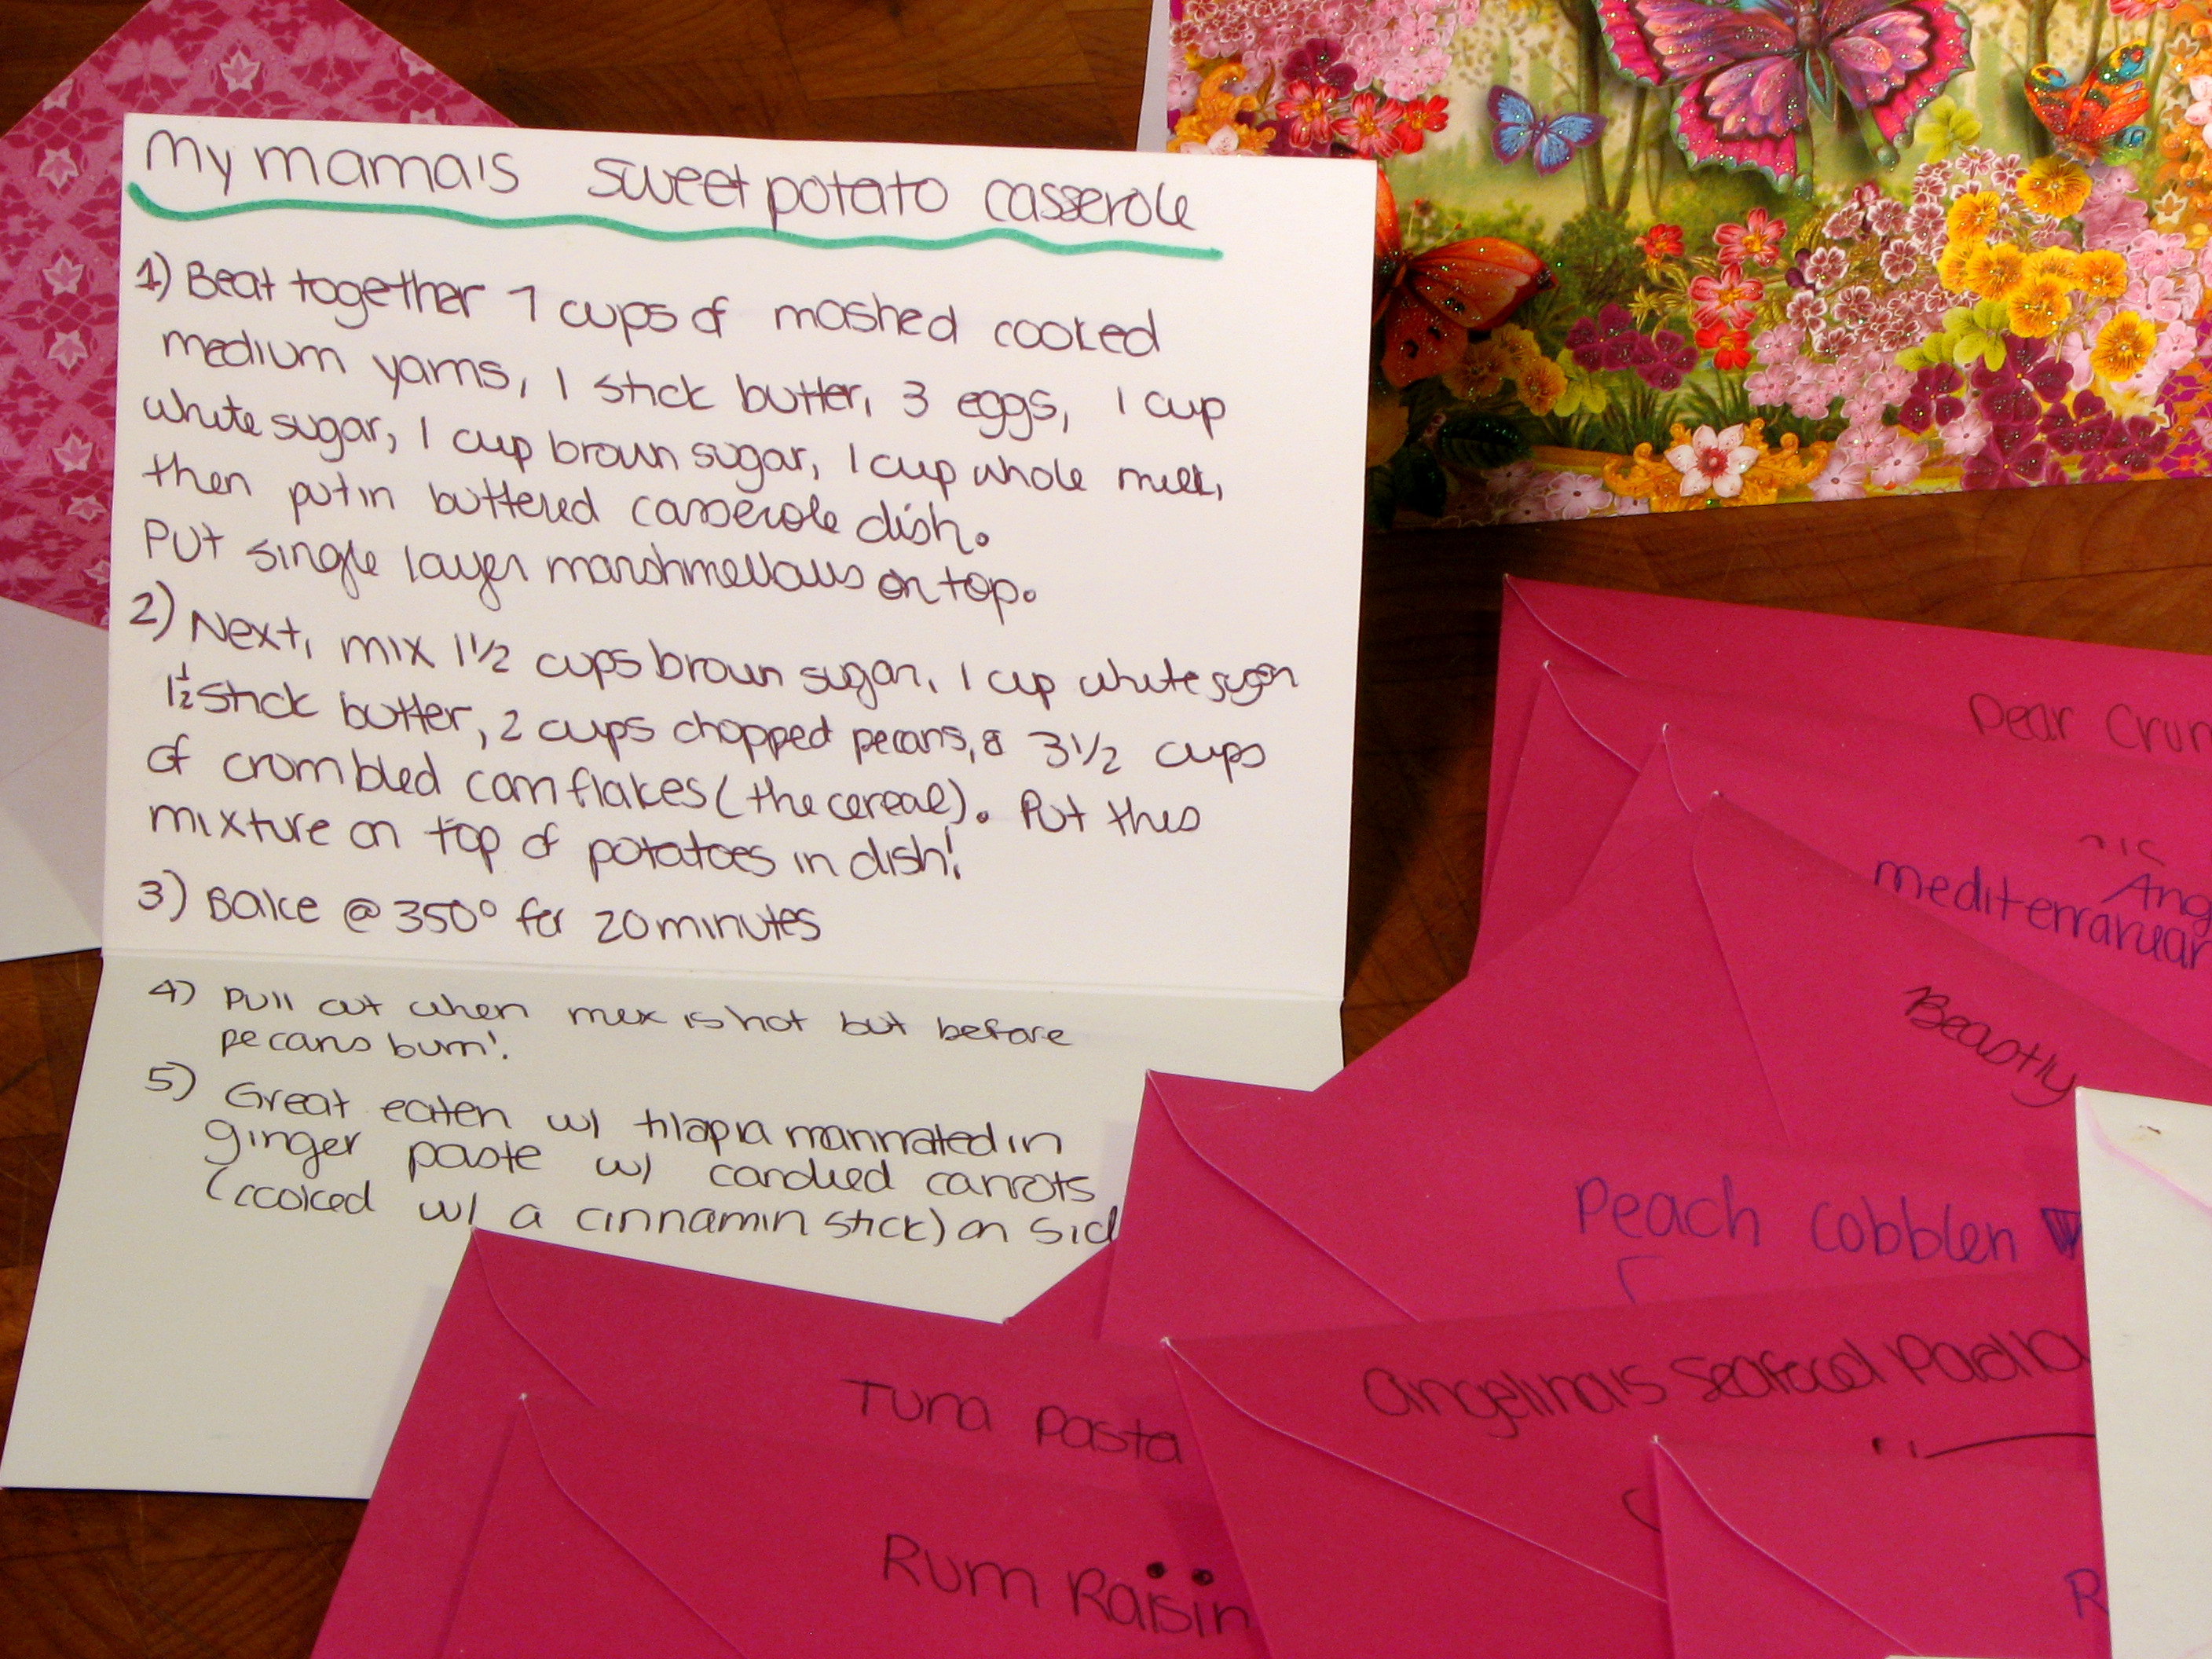 My mama's sweet potato casserole
1) Beat together 7 cups of mashed cooked
medium yams, 1 stick butter, 3 eggs, 1 cup
white sugar, 1 cup brown sugar, 1 cup whole milk,
then put in buttered casserole dish.
Put single layer marshmellows on top.
2) Next, mix 1 1/2 cups brown sugar, 1 cup white sugar
1 1/2 stick butter, 2 cups chopped pecans, & 3 1/2 cups
of crombled corn flakes (the cereal). Put this
mixture on top of potatoes in dish!
3) Bake @ 350° for 20 minutes
4) Pull out when mix is hot but before
pecans burn!
5) Great eaten w/ tilapia marinated in
ginger paste w/ candied carrots
(cooked w/ a cinnamin stick) on sid
Dear Crum
Ang
mediterranean
Beastly
Peach cobbler
Angelina's Seafood Paella
Tuna Pasta
Rum Raisin
R